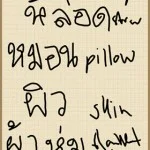 หลอด straw
หมอน pillow
ผิว skin
ผ้าห่ม